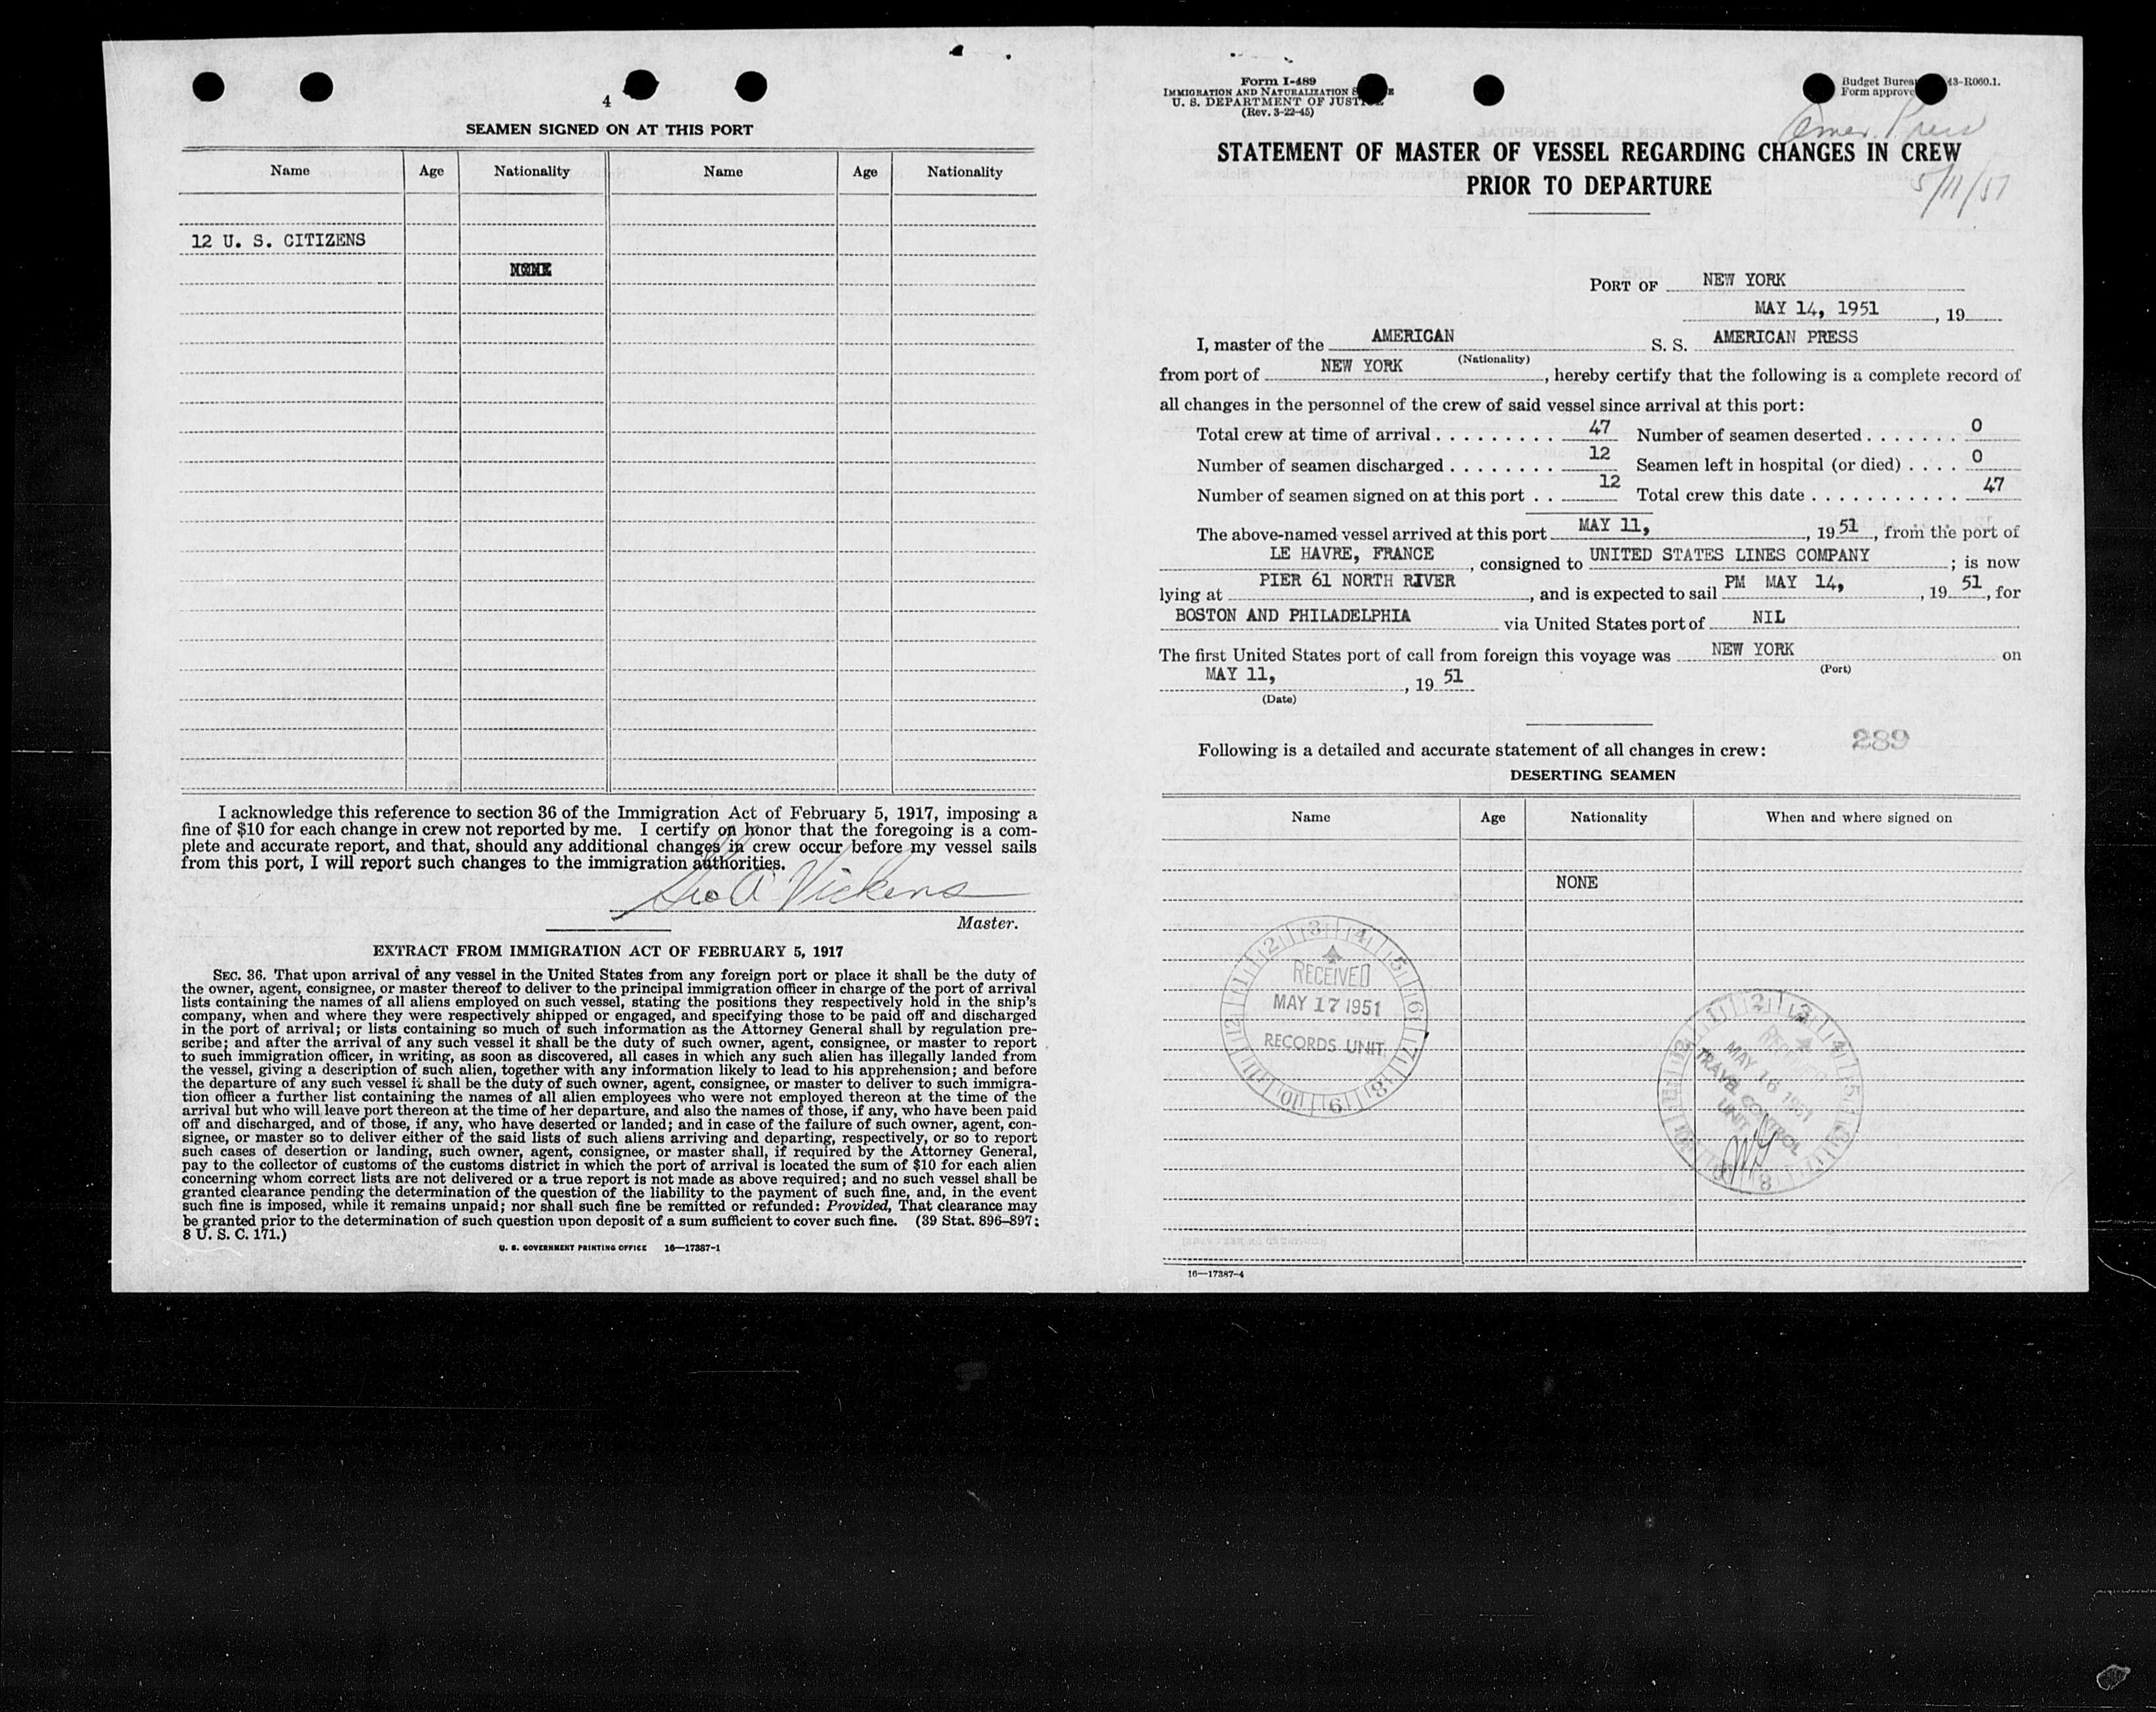 4
SEAMEN SIGNED ON AT THIS PORT
Name Age Nationality Name Age Nationality
12 U. S. CITIZENS
NONE
I acknowledge this reference to section 36 of the Immigration Act of February 5, 1917, imposing a
fine of $10 for each change in crew not reported by me. I certify on honor that the foregoing is a com-
plete and accurate report, and that, should any additional changes in crew occur before my vessel sails
from this port, I will report such changes to the immigration authorities.
Geo A Vickens
Master.
EXTRACT FROM IMMIGRATION ACT OF FEBRUARY 5, 1917
SEC. 36. That upon arrival of any vessel in the United States from any foreign port or place it shall be the duty of
the owner, agent, consignee, or master thereof to deliver to the principal immigration officer in charge of the port of arrival
lists containing the names of all aliens employed on such vessel, stating the positions they respectively hold in the ship's
company, when and where they were respectively shipped or engaged, and specifying those to be paid off and discharged
in the port of arrival; or lists containing so much of such information as the Attorney General shall by regulation pre-
scribe; and after the arrival of any such vessel it shall be the duty of such owner, agent, consignee, or master to report
to such immigration officer, in writing, as soon as discovered, all cases in which any such alien has illegally landed from
the vessel, giving a description of such alien, together with any information likely to lead to his apprehension; and before
the departure of any such vessel it shall be the duty of such owner, agent, consignee, or master to deliver to such immigra-
tion officer a further list containing the names of all alien employees who were not employed thereon at the time of the
arrival but who will leave port thereon at the time of her departure, and also the names of those, if any, who have been paid
off and discharged, and of those, if any, who have deserted or landed; and in case of the failure of such owner, agent, con-
signee, or master so to deliver either of the said lists of such aliens arriving and departing, respectively, or so to report
such cases of desertion or landing, such owner, agent, consignee, or master shall, if required by the Attorney General,
pay to the collector of customs of the customs district in which the port of arrival is located the sum of $10 for each alien
concerning whom correct lists are not delivered or a true report is not made as above required; and no such vessel shall be
granted clearance pending the determination of the question of the liability to the payment of such fine, and, in the event
such fine is imposed, while it remains unpaid; nor shall such fine be remitted or refunded: Provided, That clearance may
be granted prior to the determination of such question upon deposit of a sum sufficient to cover such fine. (39 Stat. 896-897;
8 U. S. C. 171.)
U. S. GOVERNMENT PRINTING OFFICE 16—17387-1
Form I-489
IMMIGRATION AND NATURALIZATION
U. S. DEPARTMENT OF JUSTICE
(Rev. 3-22-45)
Budget Bureau 43-R060.1.
Form approve
Amer. Press
STATEMENT OF MASTER OF VESSEL REGARDING CHANGES IN CREW
PRIOR TO DEPARTURE
5/11/51
PORT OF NEW YORK
MAY 14, 1951, 19
I, master of the AMERICAN S. S. AMERICAN PRESS
(Nationality)
from port of NEW YORK, hereby certify that the following is a complete record of
all changes in the personnel of the crew of said vessel since arrival at this port:
Total crew at time of arrival . . . . . . . . . 47 Number of seamen deserted . . . . . . . 0
Number of seamen discharged . . . . . . . . 12 Seamen left in hospital (or died) . . . . 0
Number of seamen signed on at this port . . 12 Total crew this date . . . . . . . . . . . 47
The above-named vessel arrived at this port MAY 11, , 19 51, from the port of
LE HAVRE, FRANCE, consigned to UNITED STATES LINES COMPANY; is now
lying at PIER 61 NORTH RIVER, and is expected to sail PM MAY 14, , 19 51, for
BOSTON AND PHILADELPHIA via United States port of NIL
The first United States port of call from foreign this voyage was NEW YORK on
(Port)
MAY 11, , 19 51
(Date)
289
Following is a detailed and accurate statement of all changes in crew:
DESERTING SEAMEN
Name Age Nationality When and where signed on
NONE
1 2 3 4 5 6 7 8 9 10 11 12
RECEIVED
MAY 17 1951
RECORDS UNIT
RECEIVED
MAY 16 1951
TRAVEL CONTROL
UNIT
16—17387-4